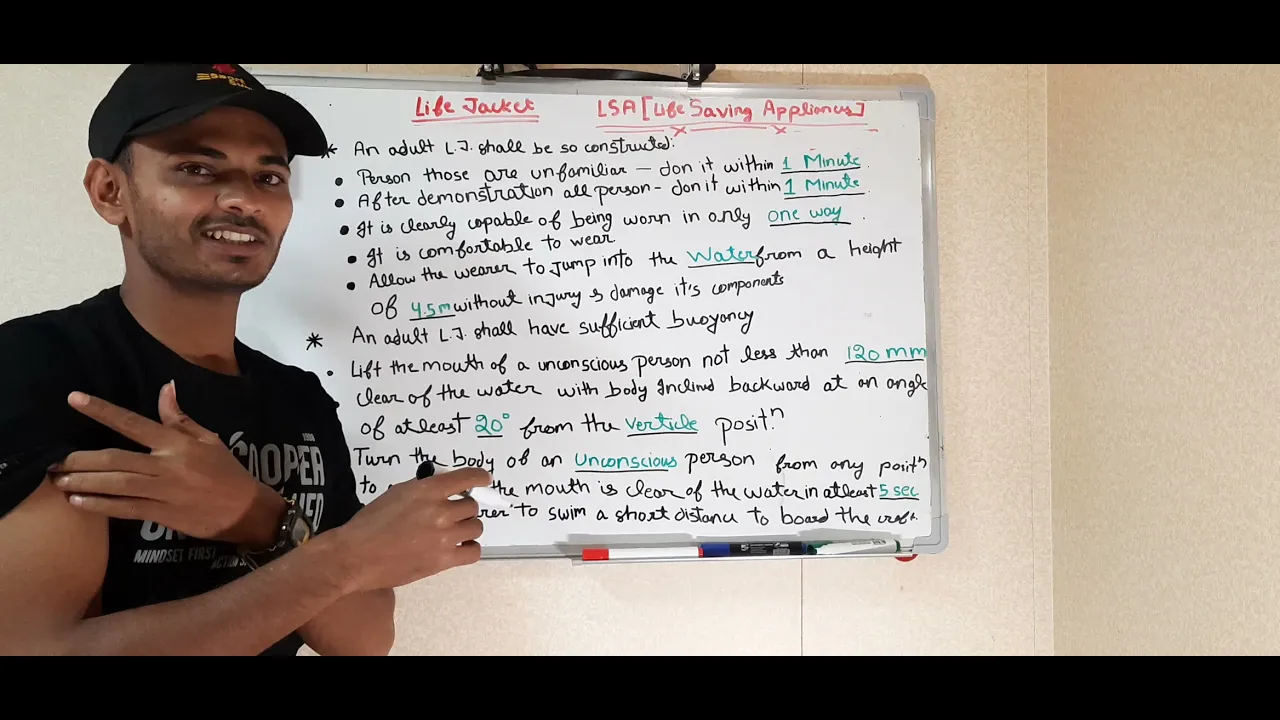 Life Jacket LSA [Life Saving Appliances]
* An adult L.J. shall be so constructed:
• Person those are unfamiliar – don it within 1 Minute.
• After demonstration all person - don it within 1 Minute.
• It is clearly capable of being worn in only one way.
• It is comfortable to wear
• Allow the wearer to jump into the Water from a height
of 4.5m without injury & damage it's components
* An adult L.J. shall have sufficient buoyoncy
• Lift the mouth of a unconscious person not less than 120mm
clear of the water with body Inclind backward at an angle
of at least 20° from the verticle positⁿ
Turn the body of an unconscious person from any positⁿ
to the mouth is clear of the water in atleast 5 sec
to swim a short distance to board the craft.
1908
COOPER
MINDSET FIRST